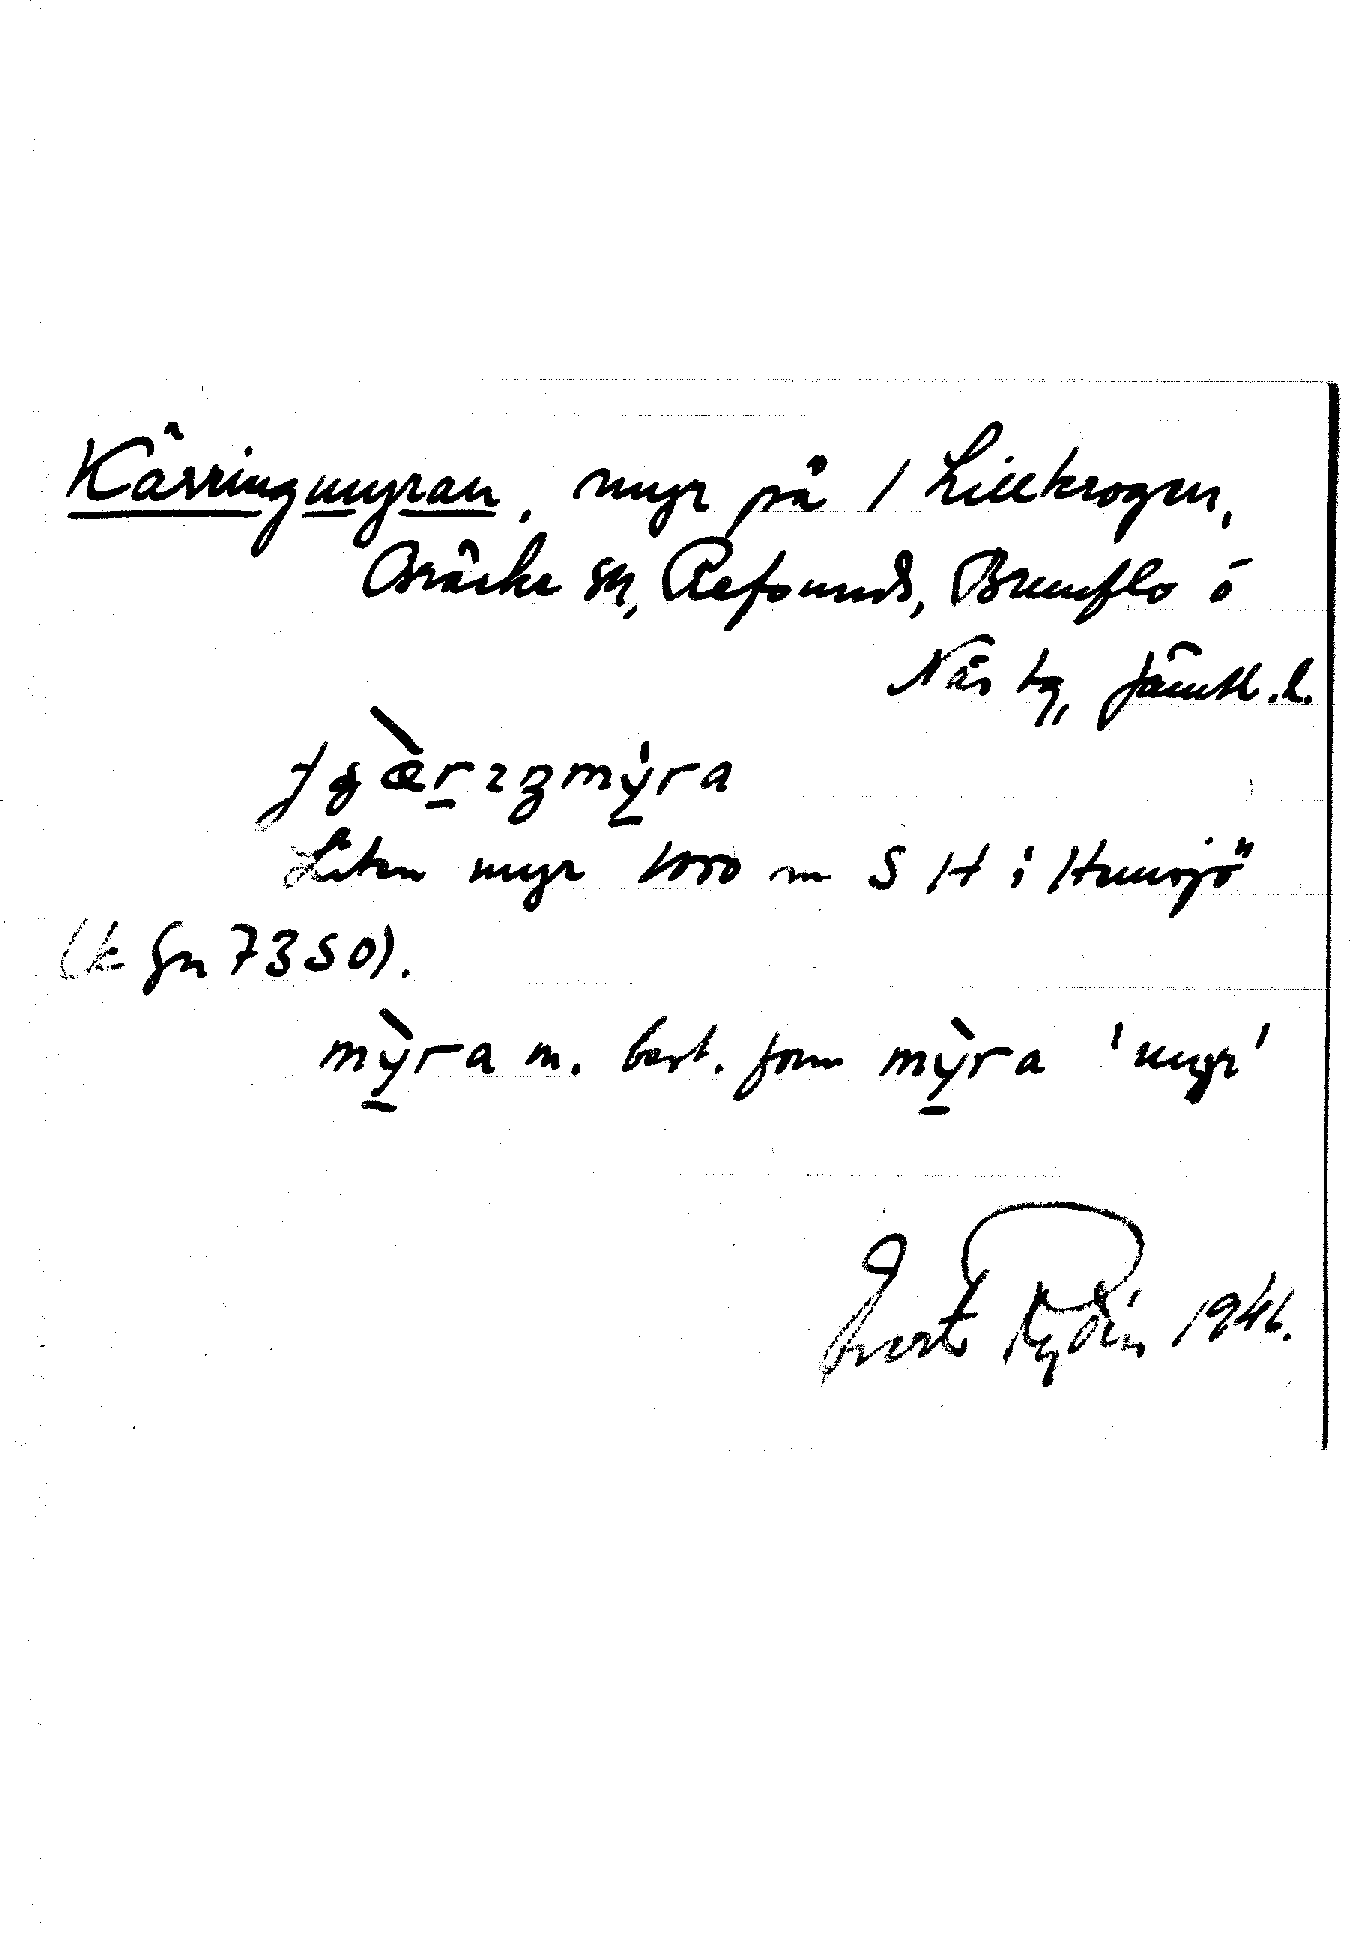 Kärringmyran, myr på 1 Lillkrogen,
Bräcke sn, Refsunds, Brunflo o
Näs tg, Jämtl. l.
mỳra
Liten myr 1000 m S H i Hunsjö
(k fn 7350).
mỳra m. best. form mỳra 'myr'
Evert Rydén 1946.